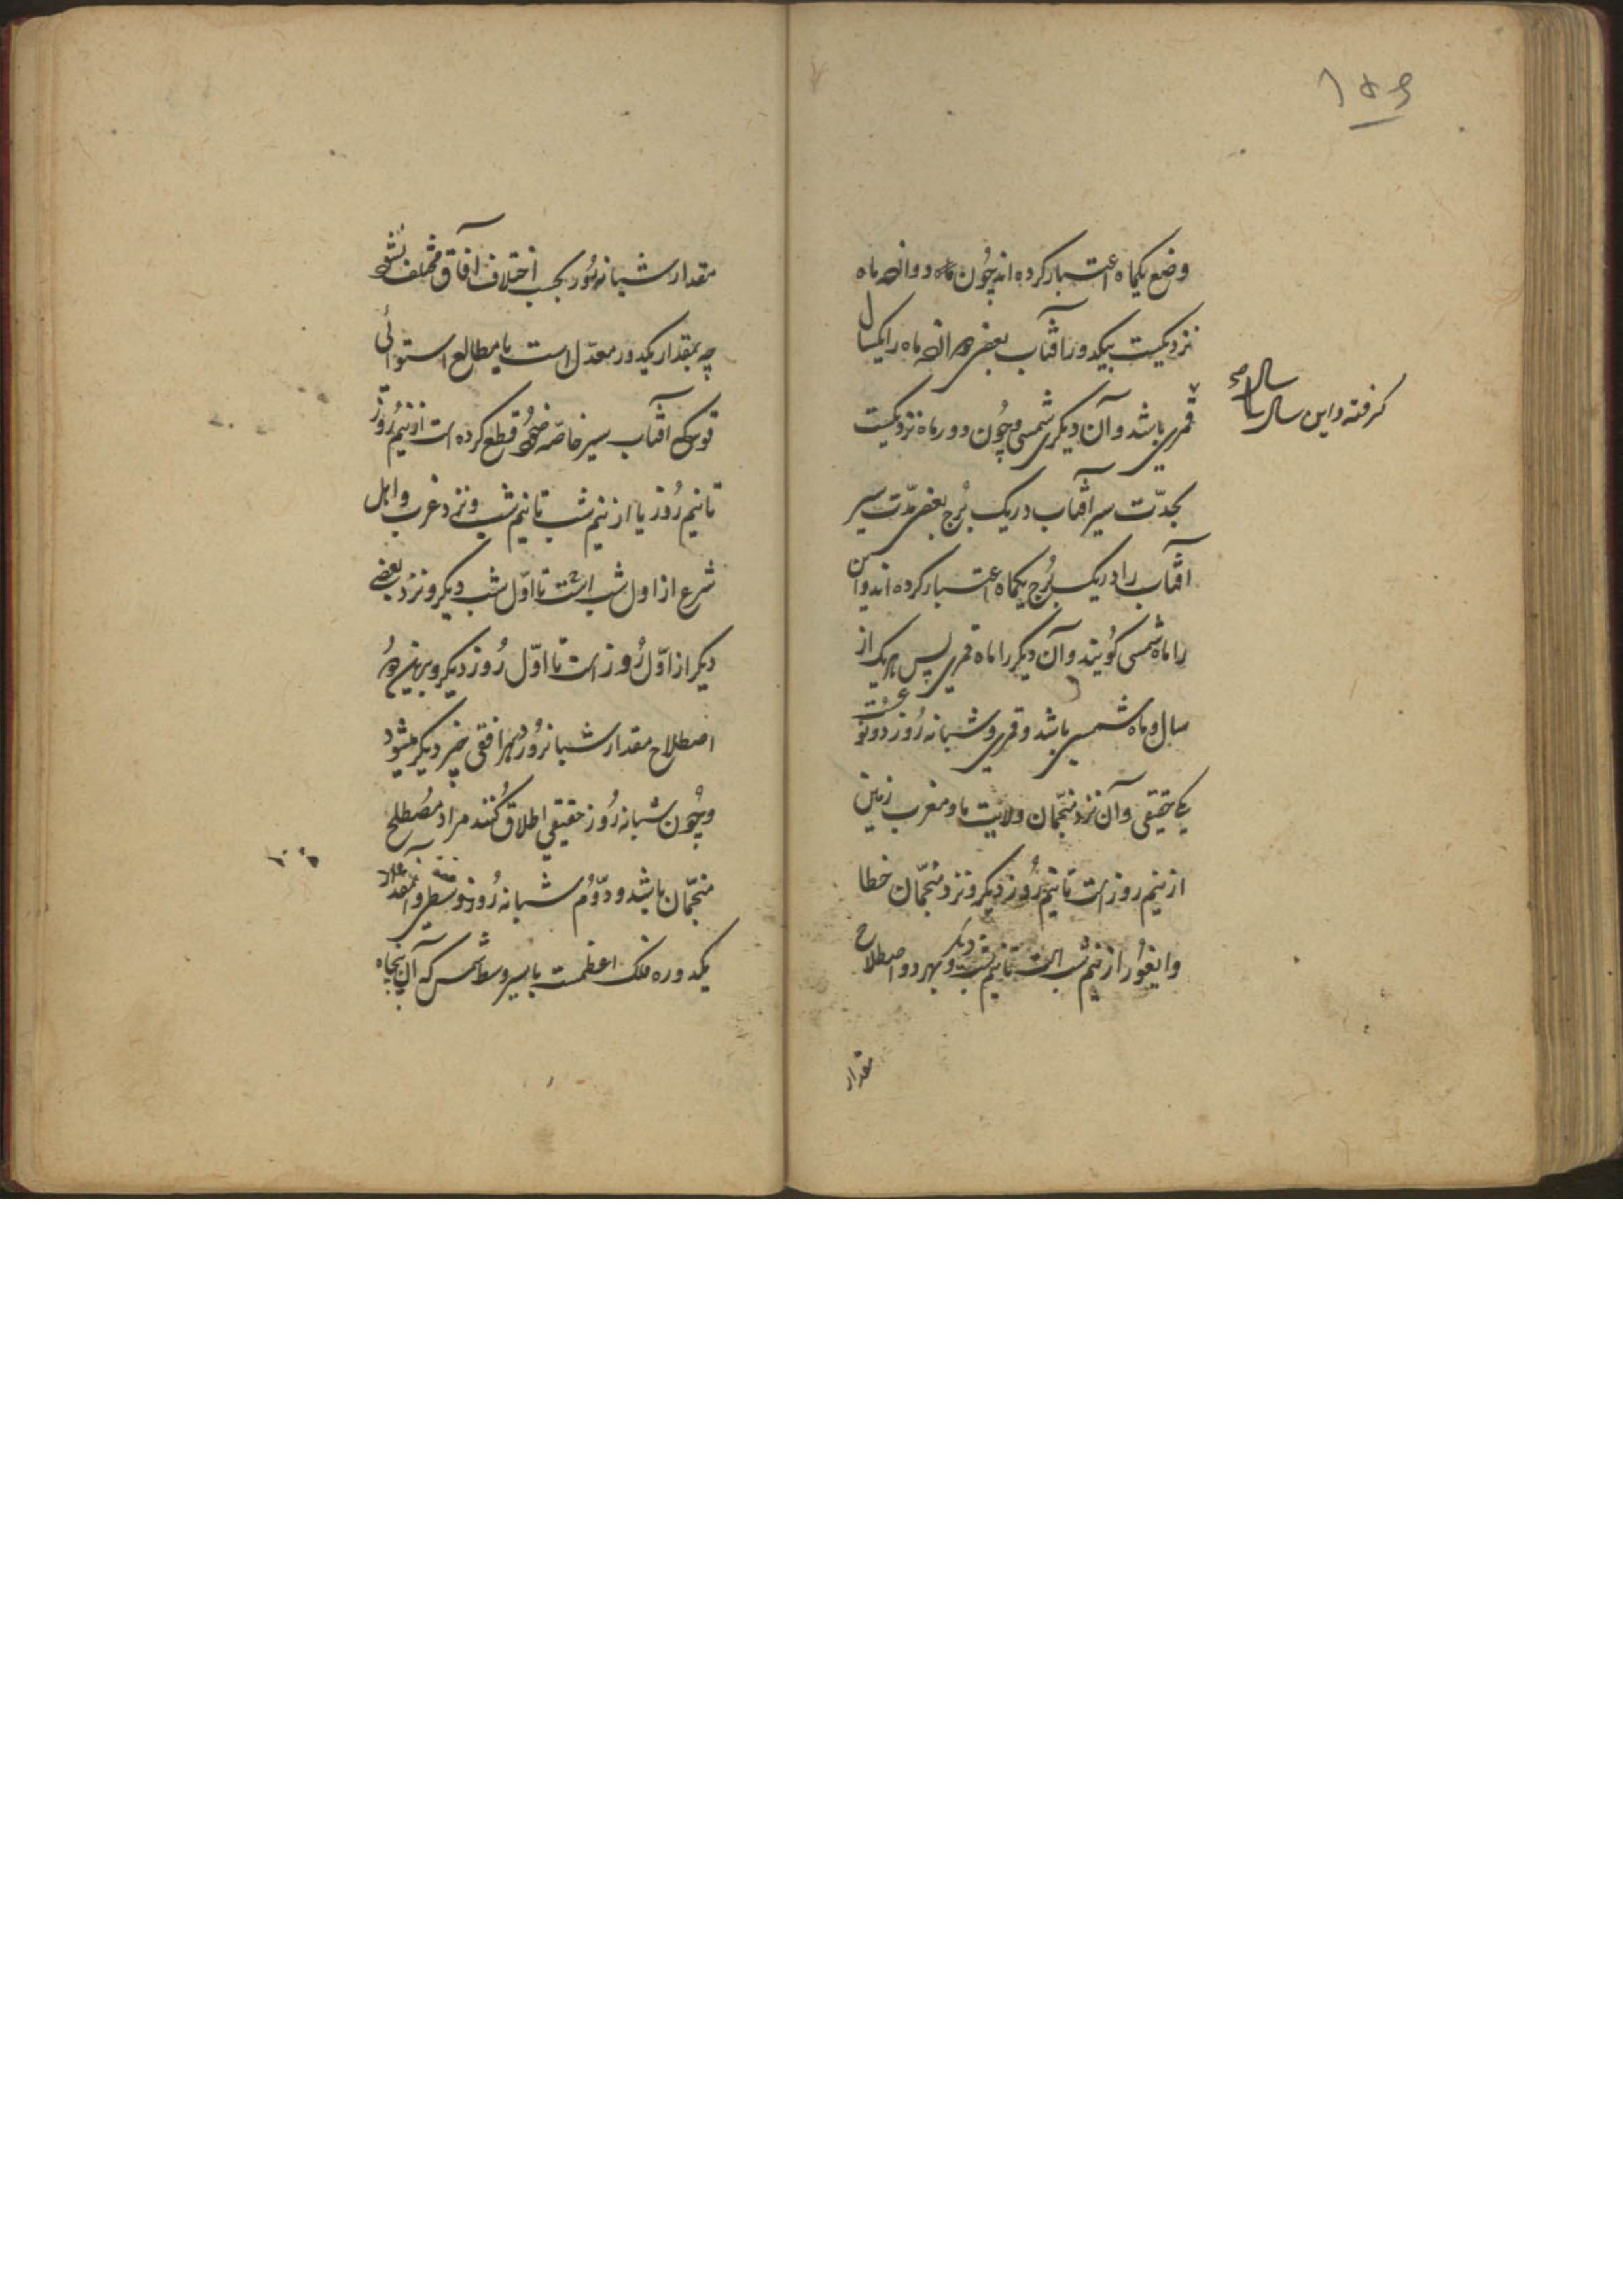 ۱۵۶
وضع یکماه اعتبار کرده اند چون دوازده ماه
نزدیکست بیکدور آفتاب بعضی دوازده ماه را یکسال
گرفته و این سال را سال
قمری باشد و آن دیگری شمسی و چون دور ماه نزدیکست
بمدّت سیر آفتاب در یک بُرج بعضی مدّت سیر
آفتاب را در یک بُرج یکماه اعتبار کرده اند و این
را ماه شمسی گویند و آن دیگر را ماه قمری پس هر یک از
سال و ماه شمسی باشد و قمری و شبانه رُوز دو نوع
یکی حقیقی و آن نزد منجّمان ولایت ما و مغرب زمین
از نیم روز است تا نیم رُوز دیگر و نزد منجّمان خطا
وایغُور از نیم شب است تا نیم شب دیگر و بهر دو اصطلاح
مقدار
مقدار شبانه رُوز بحسب اختلاف آفاق مختلف نشود
چه بمقدار یکدور معدّل است با مطالع استوائی
قوسی که آفتاب بسیر خاصّه خود قطع کرده است از نیم رُوز
تا نیم رُوز یا از نیم شب تا نیم شب و نزد عرب و اهل
شرع از اول شب است تا اوّل شب دیگر و نزد بعضے
دیگر از اوّل رُوز است تا اوّل رُوز دیگر و برین دو
اصطلاح مقدار شبانرُوز در هر افقی چیز دیگر میشود
و چُون شبانه رُوز حقیقی اطلاق کُنند مراد مُصطلح
منجّمان باشد و دوّم شبانه رُوز وسطی و آن مقدار
یکدوره فلک اعظمست با سیر وسط شمس که آن پنجاه